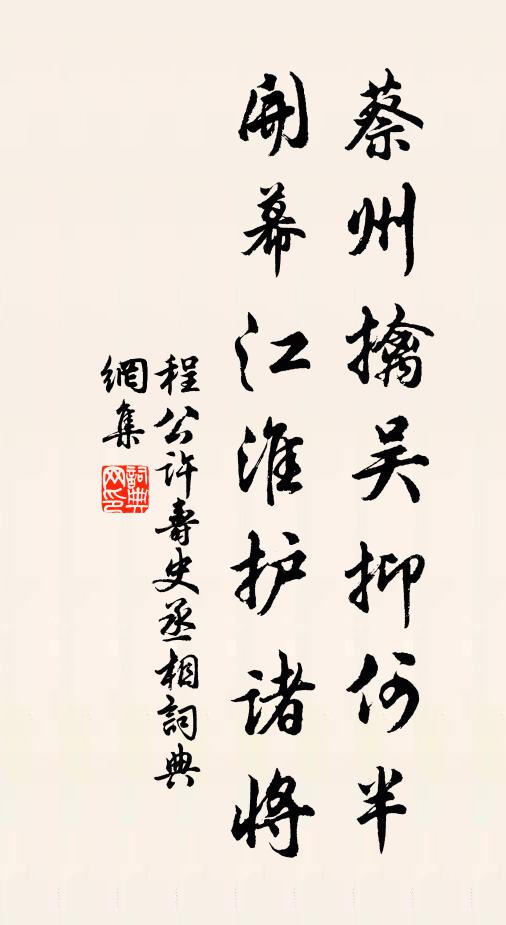 蔡州擒吴抑何半
開幕江淮护诸将
程公许寿史丞相詞典
網集
詞典网印